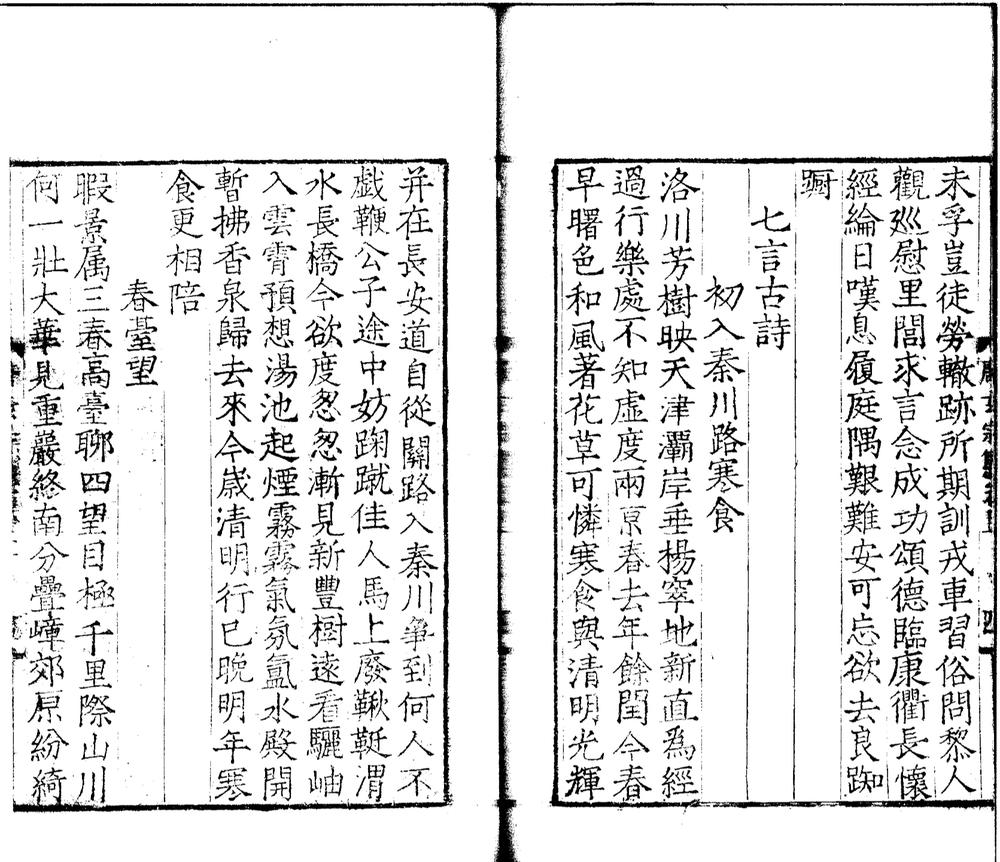 未孚豈徒勞轍跡所期訓戎車習俗問黎人
觀廵慰里閭求言念成功頌德臨康衢長懷
經綸日嘆息履庭隅艱難安可忘欲去良踟
蹰
七言古詩
初入秦川路寒食
洛川芳樹映天津灞岸垂楊窣地新直爲經
過行樂處不知虛度兩京春去年餘閏今春
早曙色和風著花草可憐寒食與清明光輝
并在長安道自從關路入秦川爭到何人不
戯鞭公子途中妨踘蹴佳人馬上廢鞦韆渭
水長橋今欲度怱怱漸見新豐樹遠看驪岫
入雲霄預想湯池起煙霧霧氣氛氳水殿開
暫拂香泉歸去來今歳清明行已晚明年寒
食更相陪
春臺望
暇景属三春高臺聊四望目極千里際山川
何一壯大華見重巖終南分疊嶂郊原紛綺